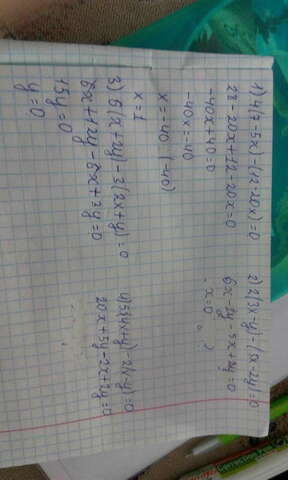 1) 4(7-5x)-(-12+20x)=0
28-20x+12-20x=0
-40x+40=0
-40x=-40
x=-40:(-40)
x=1
3) 6(x+2y)-3(2x+y)=0
6x+12y-6x+3y=0
15y=0
y=0
2) 2(3x-y)-(5x-2y)=0
6x-2y-5x+2y=0
x=0
4) 5(4x+y)-2(x-y)=0
20x+5y-2x+2y=0